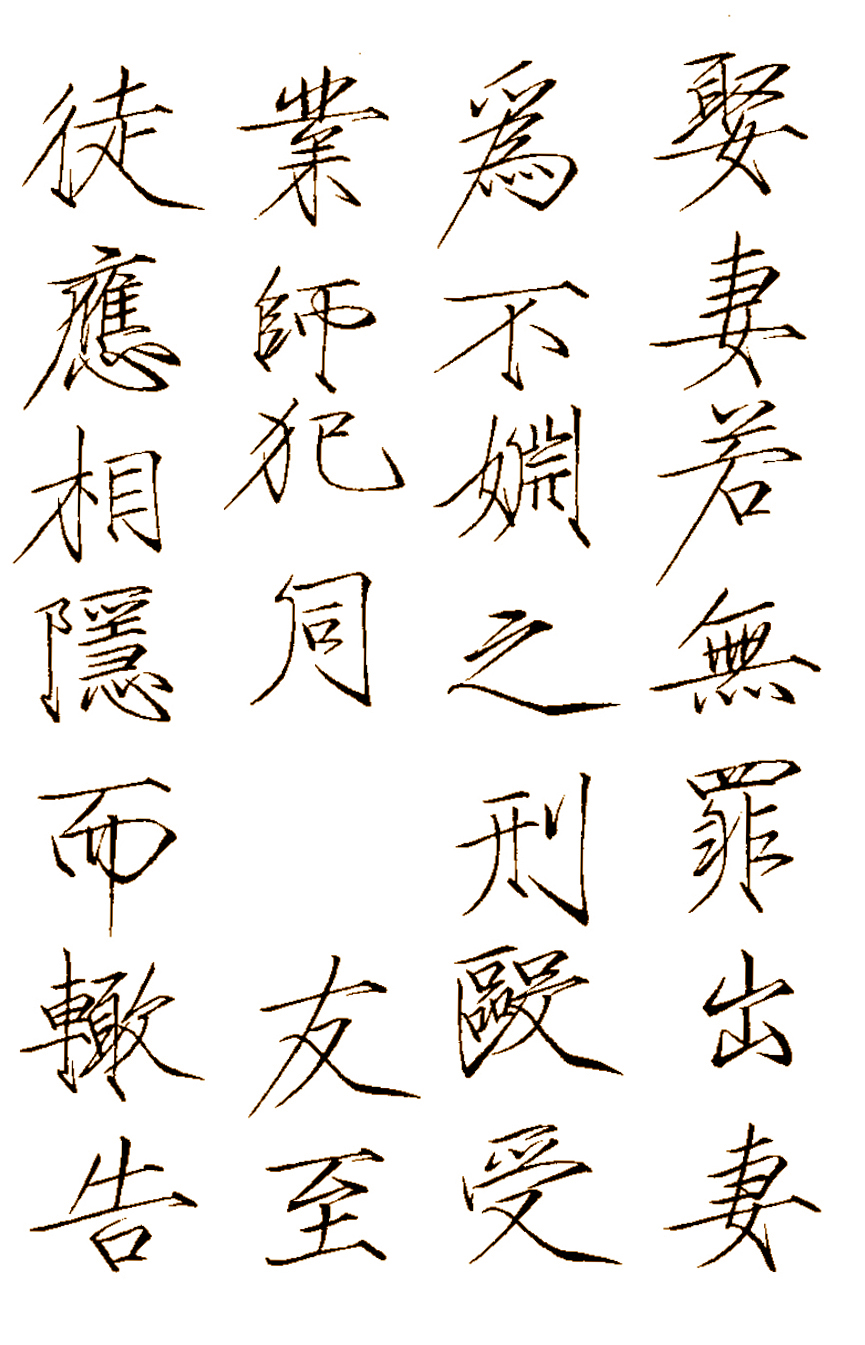 娶妻若無罪出妻
爲不嫺之刑毆受
業師犯同 友至
徒應相隱而轍告